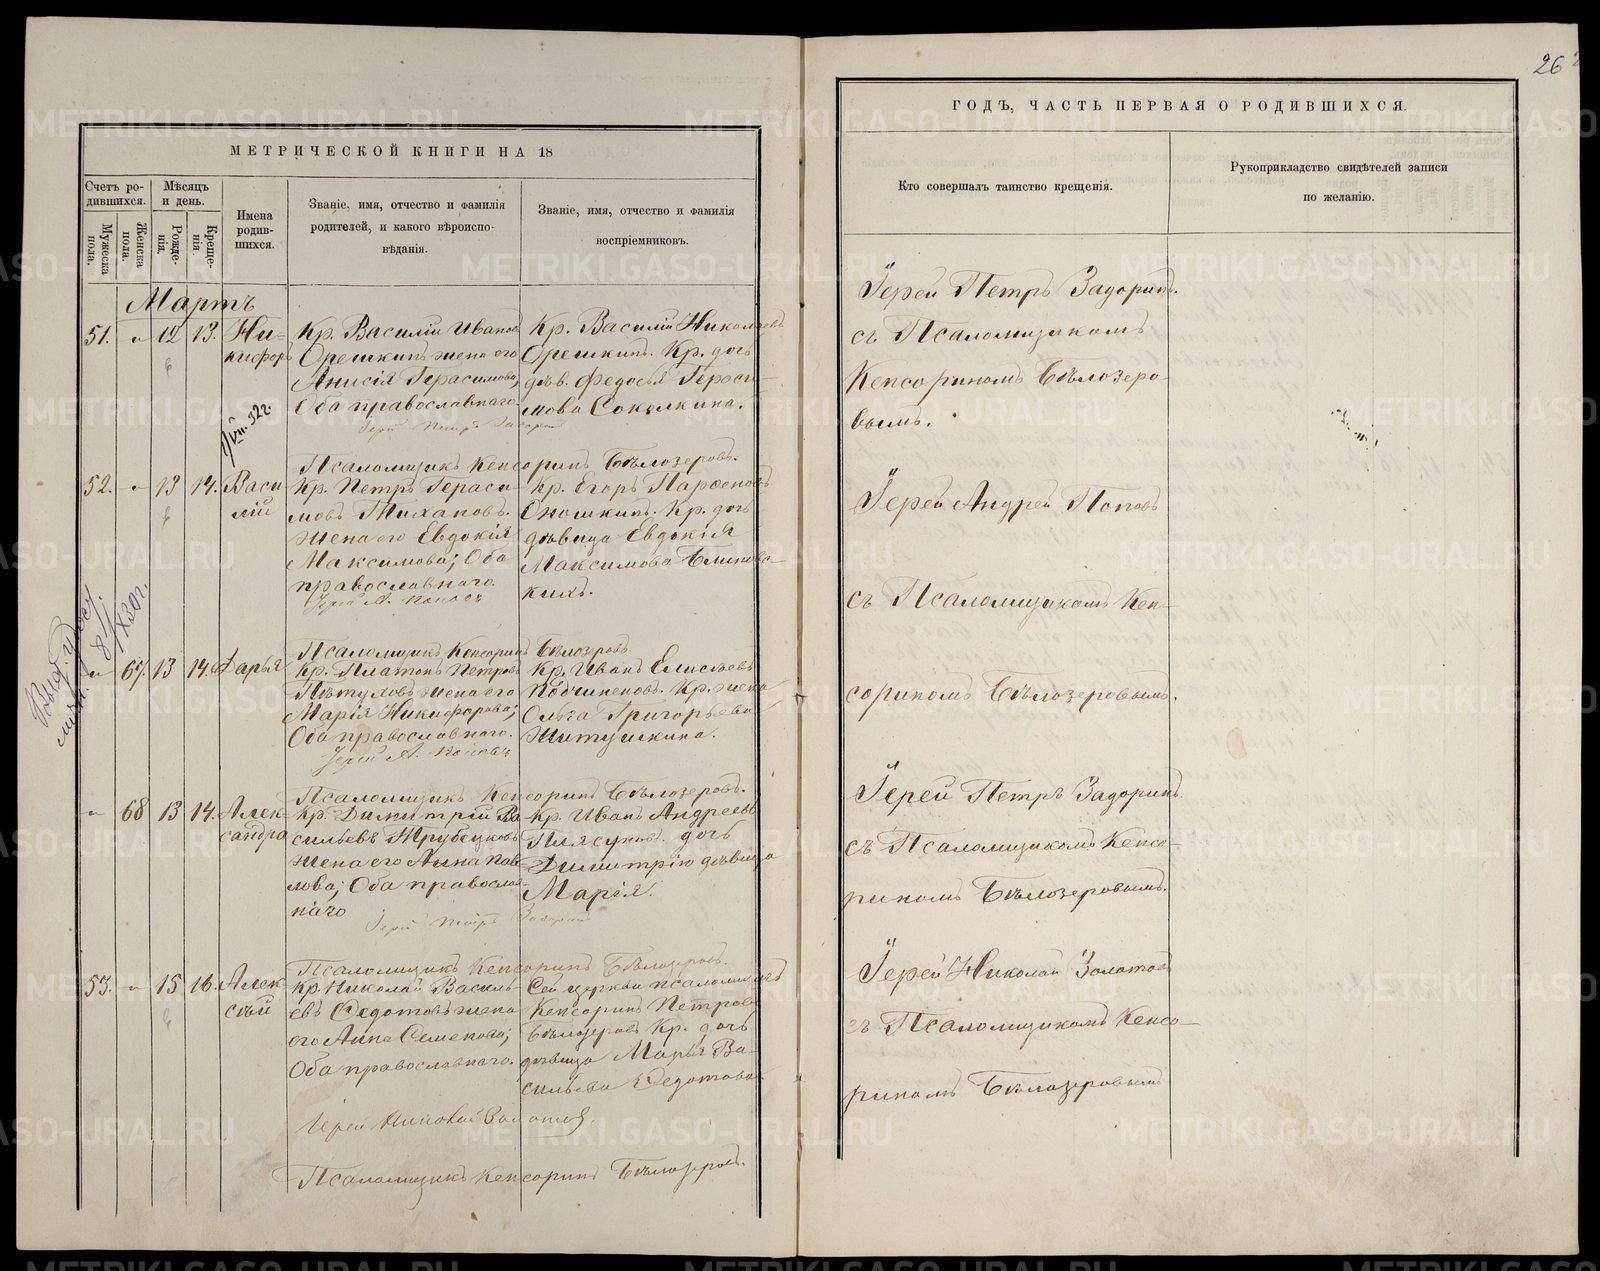 26
МЕТРИЧЕСКОЙ КНИГИ НА 18
ГОДЪ, ЧАСТЬ ПЕРВАЯ О РОДИВШИХСЯ.
Счетъ ро-
дившихся.
Мужеска
пола.
Женска
пола.
Мѣсяцъ
и день.
Рожде-
нія.
Креще-
нія.
Имена
родив-
шихся.
Званіе, имя, отчество и фамилія
родителей, и какого вѣроиспо-
вѣданія.
Званіе, имя, отчество и фамилія
воспріемниковъ.
Кто совершалъ таинство крещенія.
Рукоприкладство свидѣтелей записи
по желанію.
Мартъ
51. 12 13. Ни-
кифоръ
Кр. Василій Ивановъ
Орешкинъ жена его
Анисія Герасимова,
Оба православнаго.
Кр. Василій Николаевъ
Орешкинъ. Кр. дочь
дѣв. Федосья Гераси-
мова Соколкина.
Іерей Петръ Задоринъ
Псаломщикъ Кенсоринъ Бѣлозеровъ.
Іерей Петръ Задоринъ.
съ Псаломщикомъ
Кенсориномъ Бѣлозеро-
вымъ.
52. 13 14. Васи-
лій
Кр. Петръ Гераси-
мовъ
жена его Евдокія
Максимова; Оба
православнаго.
Кр. Егоръ
Кр. дочь
дѣвица Евдокія
Максимова
кихъ.
Іерей А. Поповъ
Псаломщикъ Кенсоринъ Бѣлозеровъ
Іерей Андрей Поповъ
съ Псаломщикомъ Кен-
сориномъ Бѣлозеровымъ.
67. 13 14. Дарья
Кр. Платонъ Петровъ
Пѣтуховъ жена его
Марія Никифорова;
Оба православнаго.
Кр. Иванъ Елисѣевъ
Кр. жена
Ольга Григорьева
Шитушкина.
Іерей А. Поповъ
Псаломщикъ Кенсоринъ Бѣлозеровъ.
68 13 14. Алек-
сандра
Кр. Димитрій Ва-
сильевъ Трубецковъ
жена его Анна Пав-
лова; Оба православ-
наго
Кр. Иванъ Андреевъ
Плясуновъ. дочь
Димитрію дѣвица
Марія.
Іерей Петръ Задоринъ
Псаломщикъ Кенсоринъ Бѣлозеровъ.
Іерей Петръ Задоринъ
съ Псаломщикомъ Кенсо-
риномъ Бѣлозеровымъ.
53. 15 16. Алек-
сѣй
Кр. Николай Василь-
евъ Федотовъ жена
его Анна Семенова;
Оба православнаго.
Сей церкви псаломщикъ
Кенсоринъ Петровъ
Бѣлозеровъ Кр. дочь
дѣвица Марья Ва-
сильева Федотова
Іерей Николай Золотовъ.
Псаломщикъ Кенсоринъ Бѣлозеровъ.
Іерей Николай Золотовъ
съ Псаломщикомъ Кенсо-
риномъ Бѣлозеровымъ
METRIKI.GASO-URAL.RU